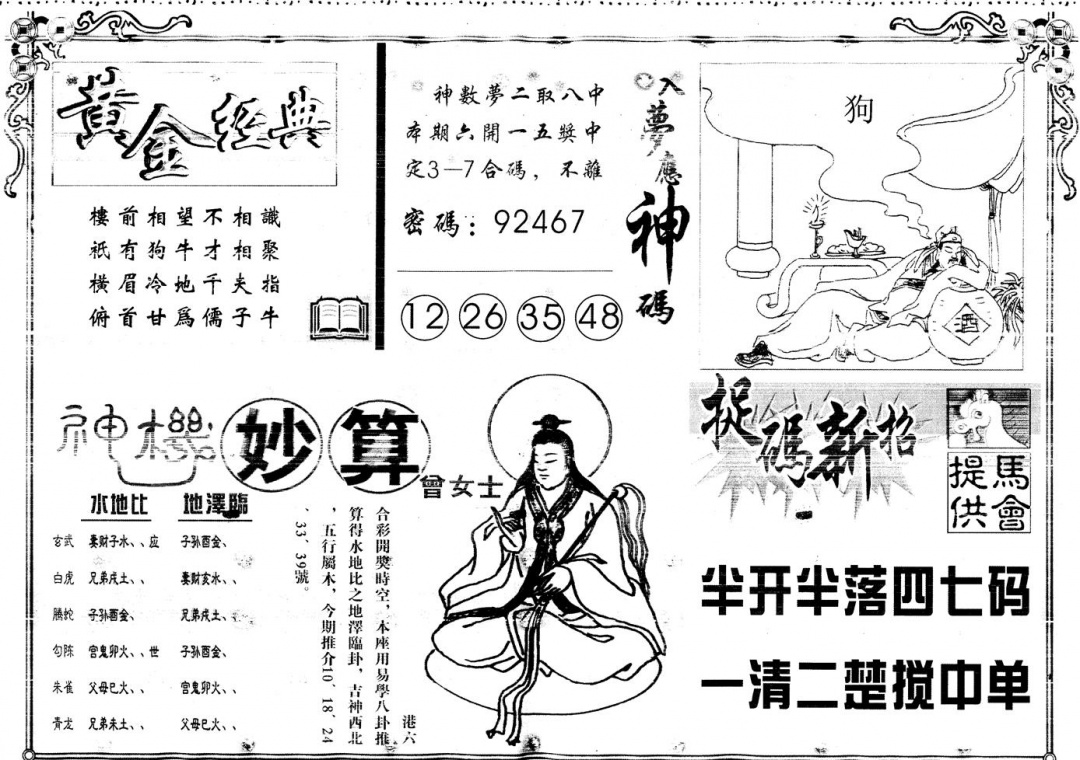 黃金經典
樓前相望不相識
祇有狗牛才相聚
橫眉冷地千夫指
俯首甘爲儒子牛
神數夢二取八中
本期六開一五獎中
定3—7合碼，不離
密碼：92467
12 26 35 48
入夢應神碼
狗
酒
神機妙算
曾女士
水地比 地澤臨
玄武 妻财子水、、应 子孙酉金、
白虎 兄弟戌土、、 妻财亥水、、
腾蛇 子孙酉金、 兄弟戌土、、
勾陈 宫鬼卯火、、世 子孙酉金、
朱雀 父母巳火、、 宫鬼卯火、、
青龙 兄弟未土、、 父母巳火、、
港六
合彩開獎時空，本座用易學八卦推
算得水地比之地澤臨卦，吉神西北
，五行屬木，今期推介10、18、24
、33、39號。
捉碼新招
馬會提供
半开半落四七码
一清二楚搅中单